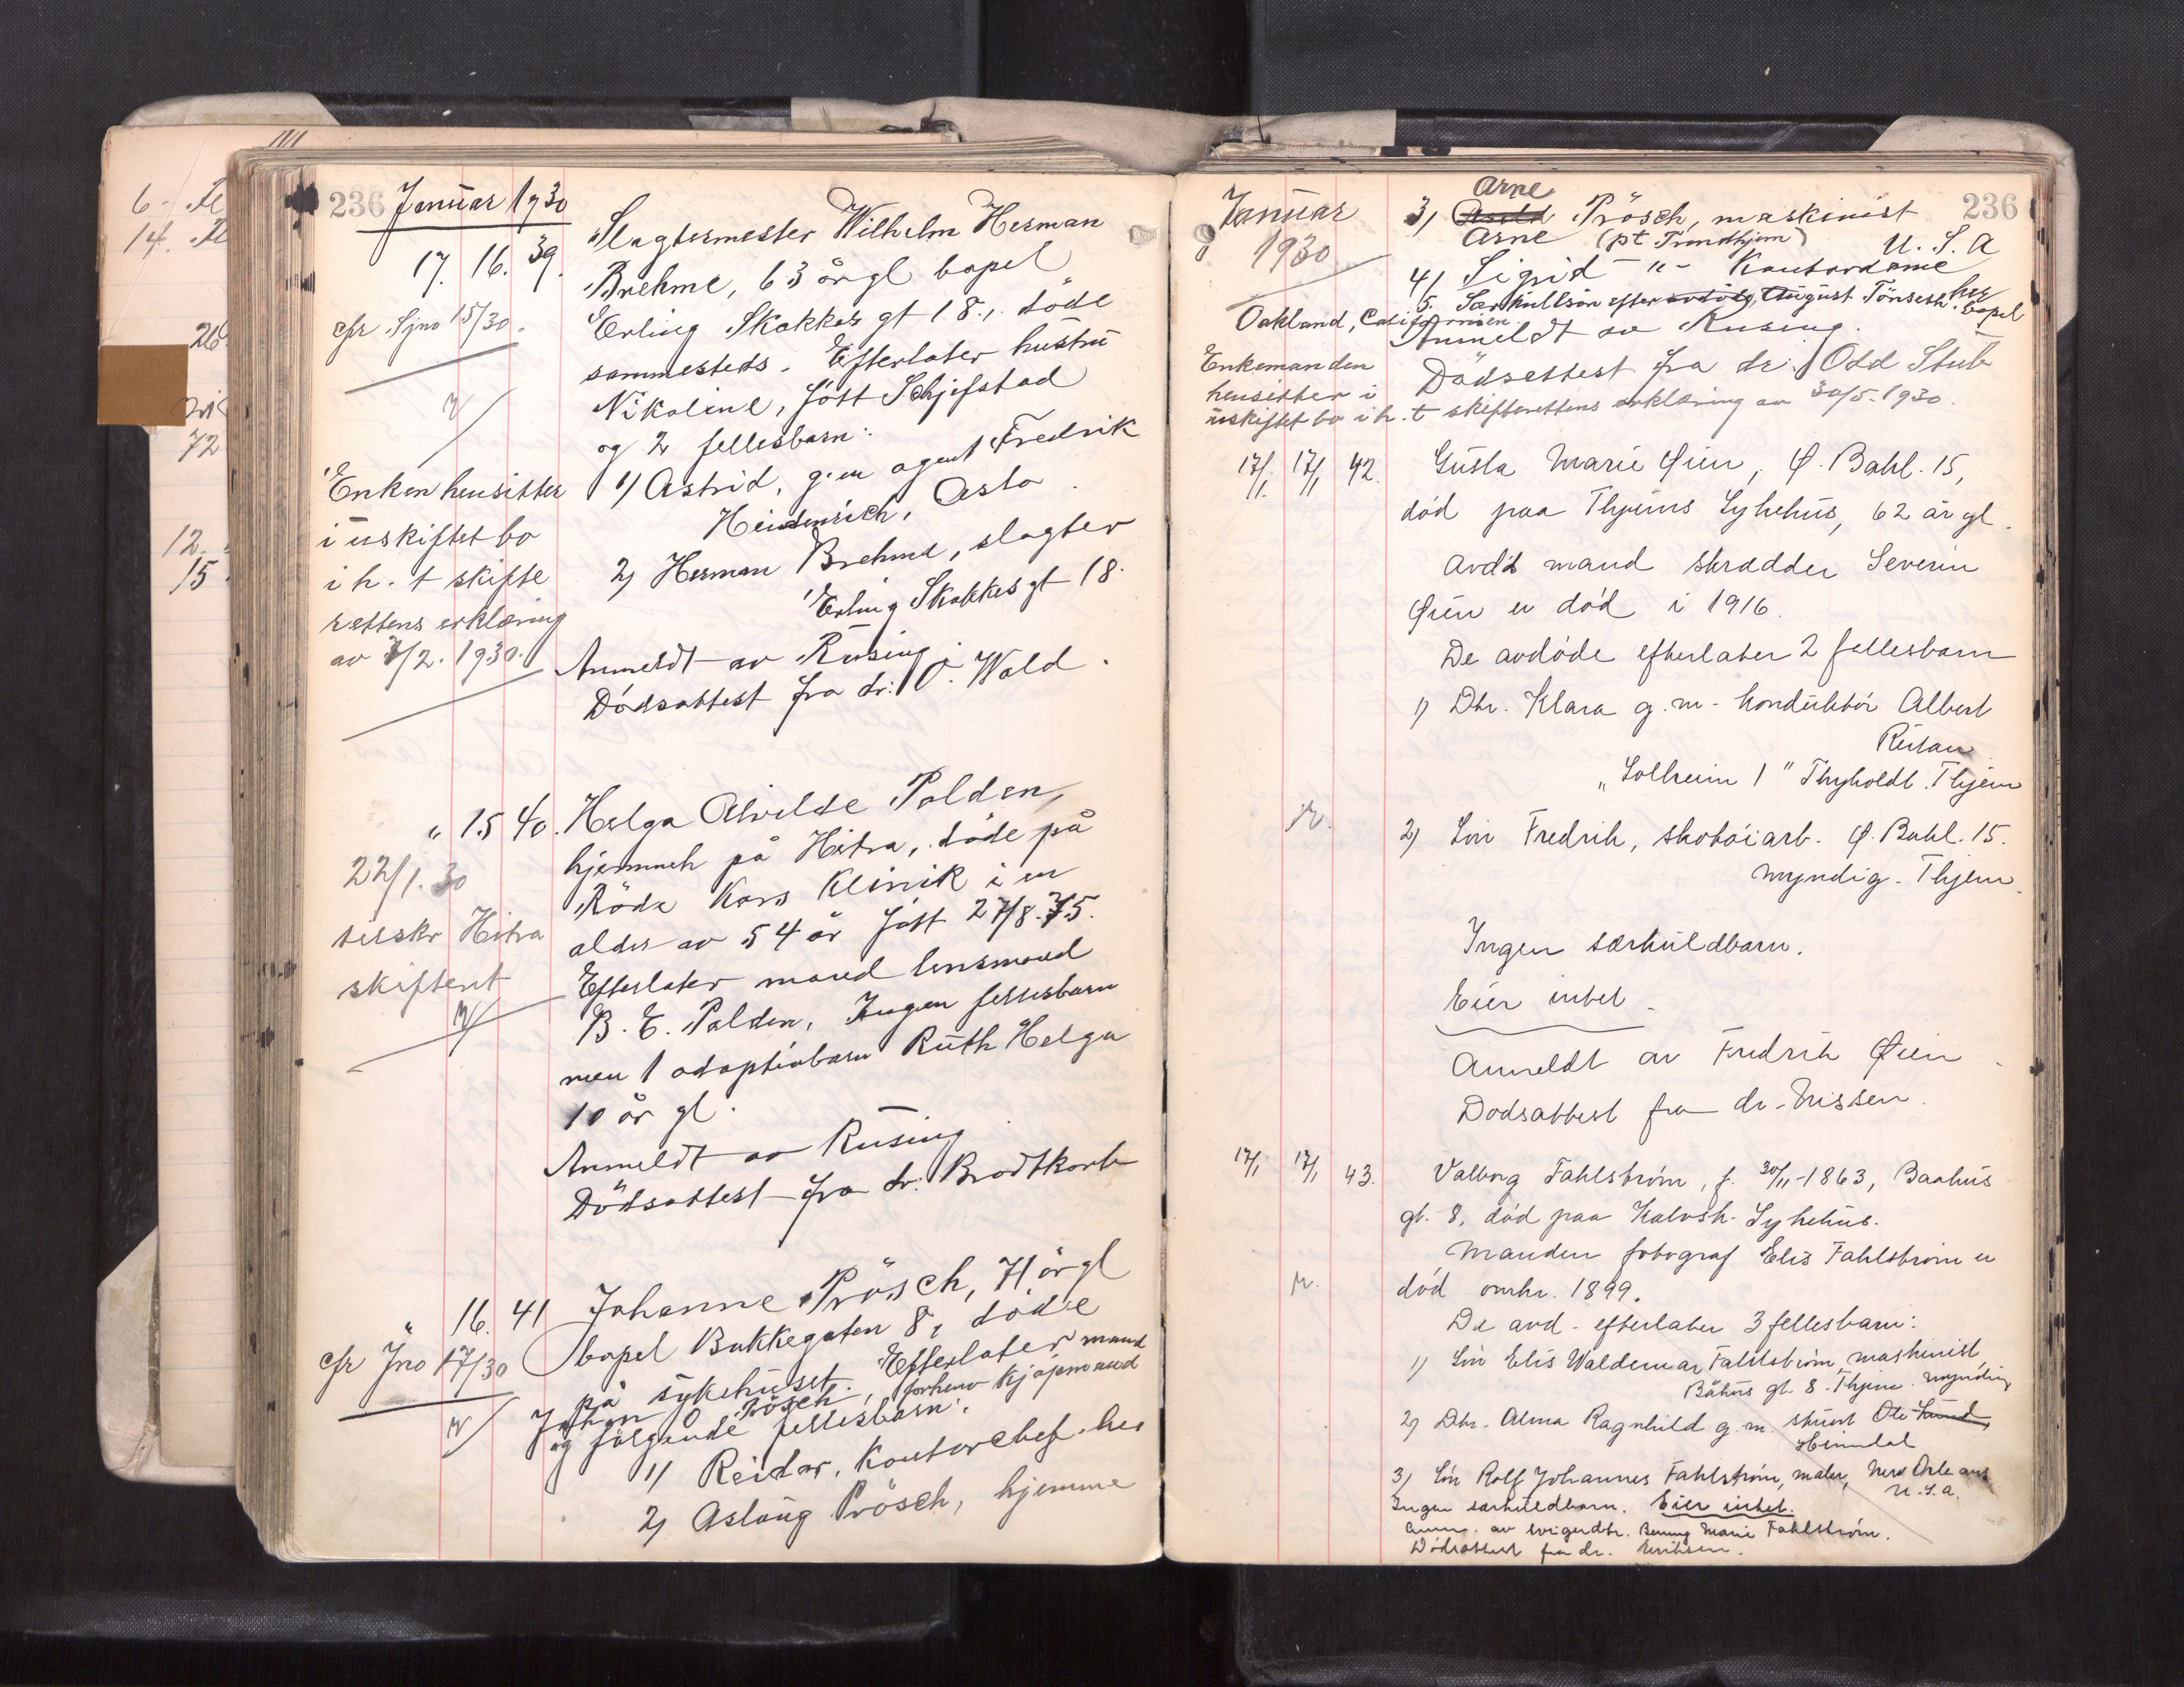 236 Januar 1930
17. 16. 39. Slagtermester Wilhelm Herman
Brehme, 63 år gl bopel
cfr. Sjno 15/30. Erling Skakkes gt 18., döde
sammesteds. Efterlater hustru
Nikoline, født Schjefstad
og 2 fellesbarn:
Enken hensitter 1) Astrid, g. m agent Fredrik
i uskiftet bo Heidenreich, Oslo.
i h. t skifte 2) Herman Brehme, slagter
rettens erklæring Erling Skakkes gt 18.
av 3/2. 1930. Anmeldt av Rusing
Dödsattest fra dr: J. Wald.
" 15 40. Helga Alvilde Palden,
hjemmeh på Hitra, döde på
22/1. 30 Röde Kors Klinik i en
alder av 54 år født 27/8. 75.
selskr Hitra Efterlater mand lensmand
skifteret B. E. Palden, Ingen fellesbarn
men 1 adoptivbarn Ruth Helga
10 år gl.
Anmeldt av Rusing
Dödsattest fra dr: Brodtkorb
" 16. 41 Johanne Prösch, 71 år gl
cfr Jno 17/30 bopel Bakkegaten 8, döde
på sykehuset. Efterlater mand
Johan O. Prösch, forhenv kjøpmand
og følgende fellesbarn:
1) Reidar, Kontorchef. her
2) Aslaug Prösch, hjemme
Januar 1930 236
Arne
3) Prösch, maskinist
Arne (pt Trondhjem) U. S. A
4) Sigrid -"- Kontordame
5. Særkullsön efter avdöde, August Tönseth her bopel
Oakland, Californien
Anmeldt av Rusing.
Enkemanden Dödsattest fra dr: Odd Stub
hensitter i
uskiftet bo i h. t skifterettens erklæring av 30/5. 1930.
17/1. 17/1 42. Gusta Marie Øien, Ø. Bakl. 15,
død paa Thjems Sykehus, 62 år gl.
Avd's mand skrædder Severin
Øien er død i 1916.
De avdøde efterlater 2 fellesbarn
1) Dtr. Klara g. m. konduktör Albert
Reitan
"Solheim 1" Thyholdt. Thjem
2) Sön Fredrik, skotöiarb. Ø. Bakl. 15.
myndig. Thjem.
Ingen særkuldbarn.
Eier intet.
Anmeldt av Fredrik Øien
Dødsattest fra dr. Nissen.
17/1 17/1 43. Valborg Fahlstrøm, f. 30/11-1863, Baahus
gt. 8, død paa Kalvsk. Sykehus.
Manden fotograf Elis Fahlstrøm er
død omkr. 1899.
De avd. efterlater 3 fellesbarn:
1) Sön Elis Waldemar Fahlstrøm, maskinist,
Båhus gt. 8. Thjem. myndig
2) Dtr. Alma Ragnhild g. m. stuert Ole Lund,
Heimdal
3) Sön Rolf Johannes Fahlstrøm, maler, New Orleans
U. S. A.
Ingen særkuldbarn. Eier intet.
Anm. av svigerdtr. Marie Fahlstrøm.
Dödsattest fra dr.